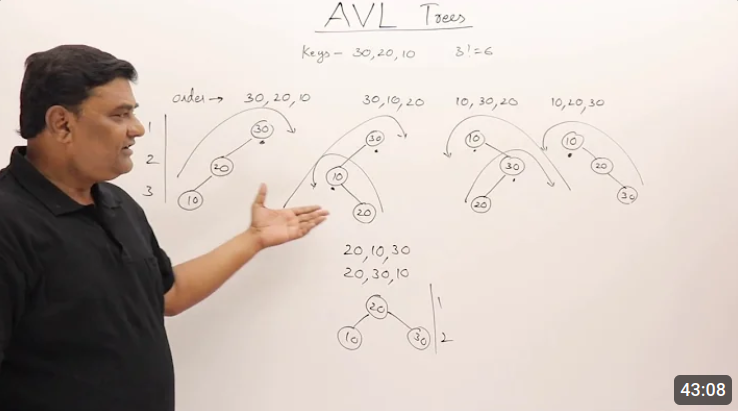 AVL Trees
Keys - 30, 20, 10 3! = 6
order → 30, 20, 10 30, 10, 20 10, 30, 20 10, 20, 30
1 30 30 10 10
2 20 10 30 20
3 10 20 20 30
20, 10, 30
20, 30, 10
20 1
10 30 2
43:08